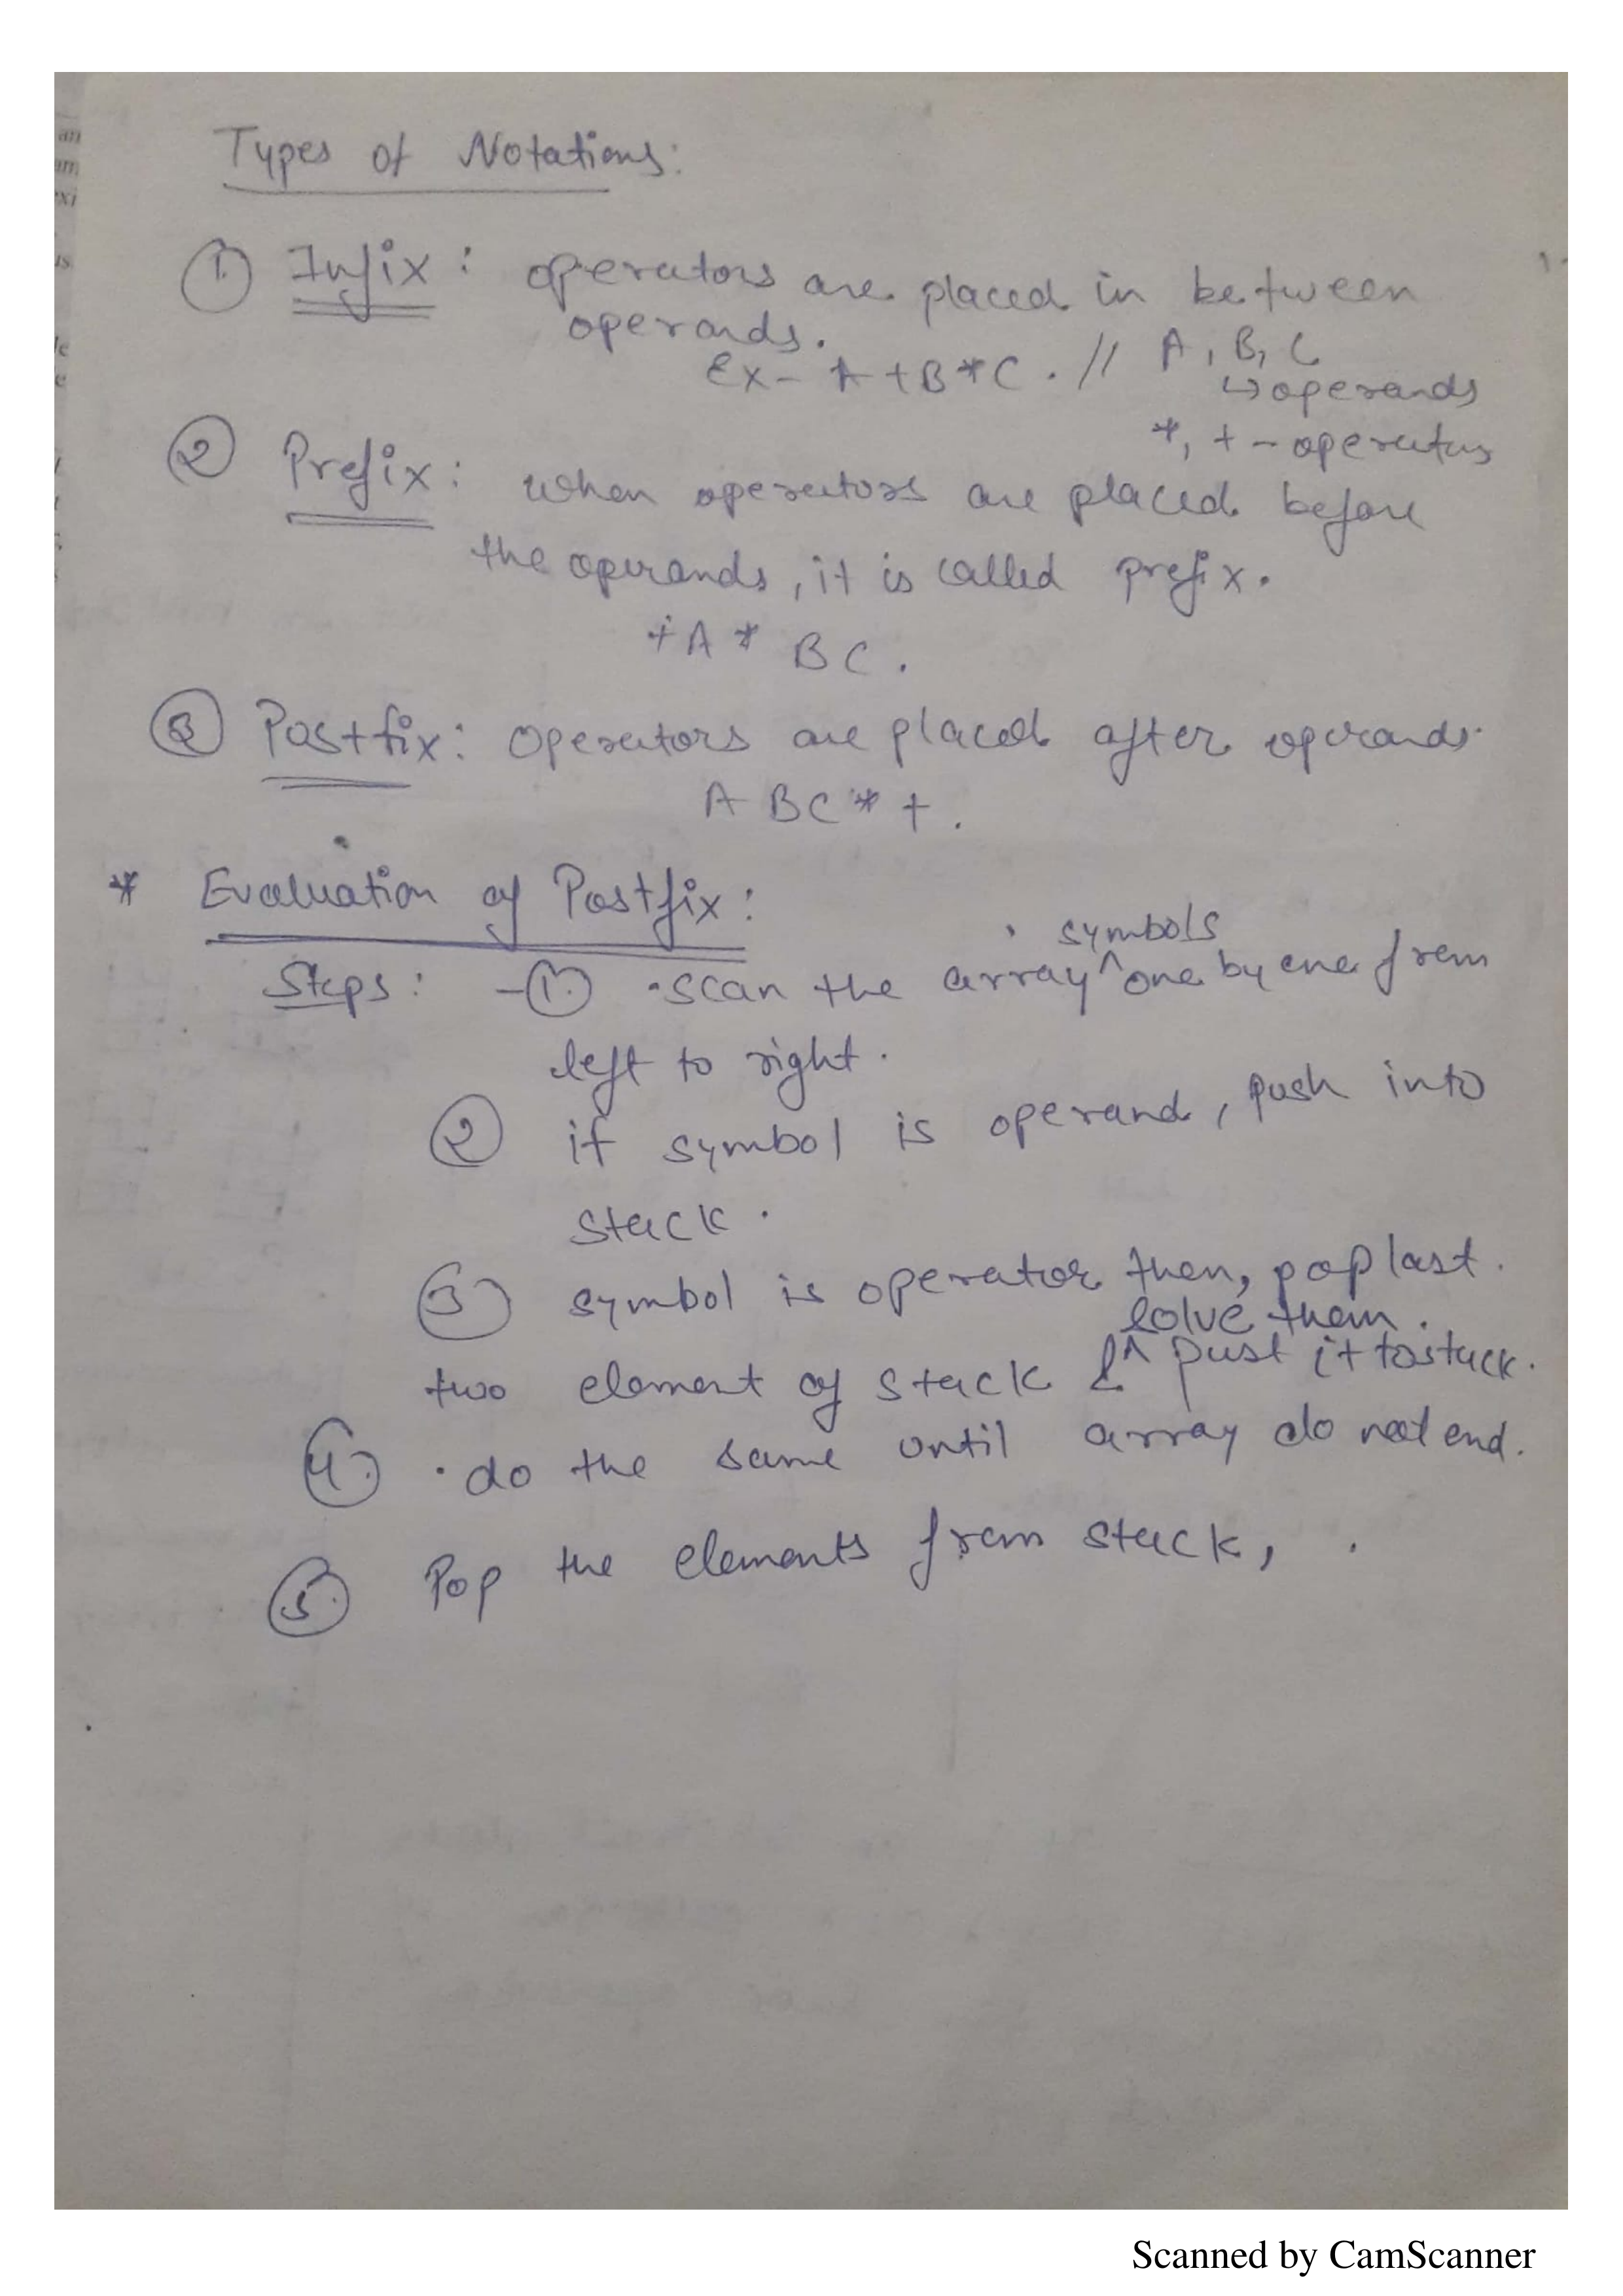 Types of Notations:
① Infix : operators are placed in between
operands.
Ex- A+B*C. // A, B, C
↳operands
*, + - operators
② Prefix : when operators are placed before
the operands, it is called prefix.
+A* BC.
③ Postfix : operators are placed after operands.
A BC* +.
* Evaluation of Postfix :
symbols
Steps : -① ·scan the array ^ one by one from
left to right.
② if symbol is operand, push into
stack.
③ symbol is operator then, pop last.
solve them.
two element of stack & ^ pust it to stack.
④ · do the same until array do not end.
⑤ Pop the elements from stack, .
Scanned by CamScanner